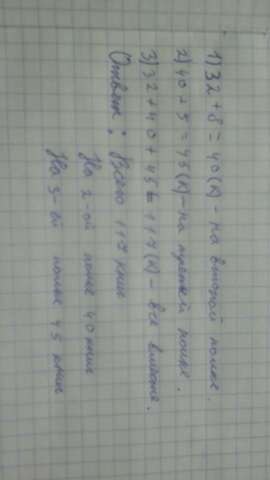 1) 32 + 8 = 40 (к) - на второй полке.
2) 40 + 5 = 45 (к) - на третьей полке.
3) 32 + 40 + 45 = 117 (к) - все вместе.
Ответ: Всего 117 книг
На 2-ой полке 40 книг
На 3-ей полке 45 книг